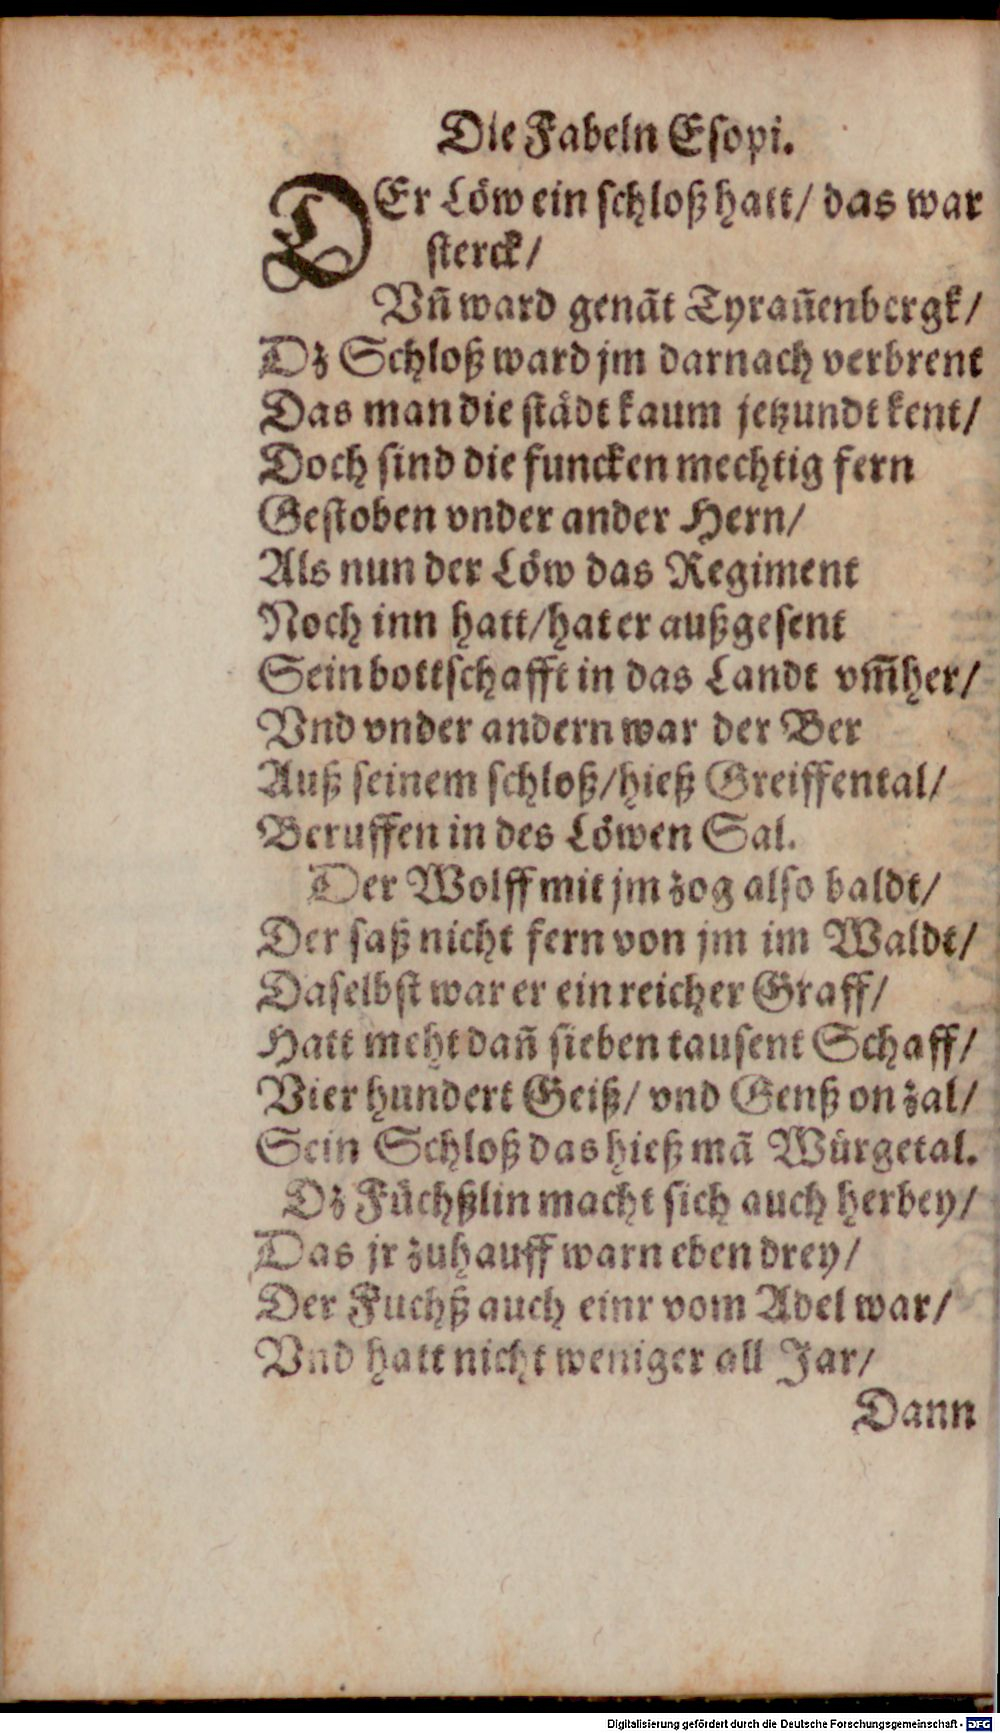 Die Fabeln Esopi.
DEr Löw ein schloß hatt/ das war
sterck/
Vñ ward genãt Tyrañenbergk/
Dz Schloß ward jm darnach verbrent
Das man die städt kaum jetzundt kent/
Doch sind die funcken mechtig fern
Gestoben vnder ander Hern/
Als nun der Löw das Regiment
Noch inn hatt/hat er außgesent
Sein bottschafft in das Landt vm̃her/
Vnd vnder andern war der Ber
Auß seinem schloß/hieß Greiffental/
Beruffen in des Löwen Sal.
Der Wolff mit jm zog also baldt/
Der saß nicht fern von jm im Waldt/
Daselbst war er ein reicher Graff/
Hatt meht dañ sieben tausent Schaff/
Vier hundert Geiß/ vnd Genß on zal/
Sein Schloß das hieß mã Würgetal.
Dz Füchßlin macht sich auch herbey/
Das jr zuhauff warn eben drey/
Der Fuchß auch einr vom Adel war/
Vnd hatt nicht weniger all Jar/
Dann
Digitalisierung gefördert durch die Deutsche Forschungsgemeinschaft - DFG